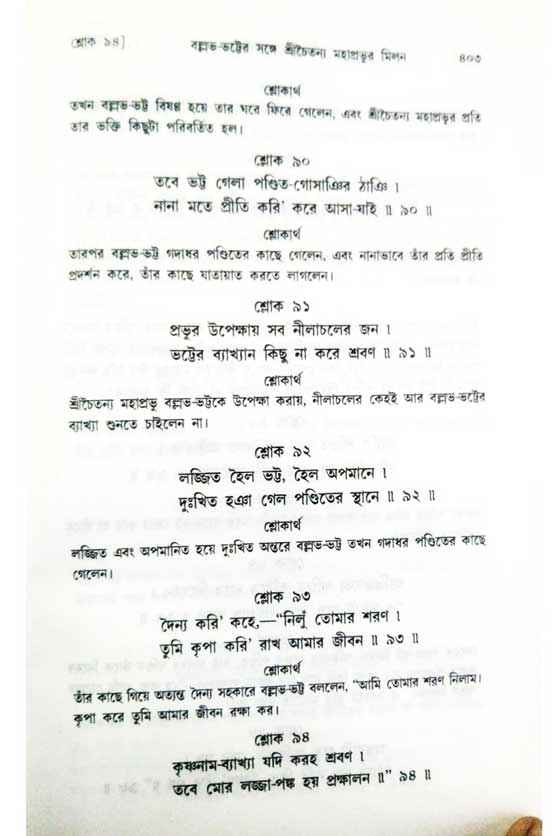 শ্লোক ৯৪]
বল্লভ-ভট্টের সঙ্গে শ্রীচৈতন্য মহাপ্রভুর মিলন
৪০৩
শ্লোকার্থ
তখন বল্লভ-ভট্ট বিষণ্ণ হয়ে তার ঘরে ফিরে গেলেন, এবং শ্রীচৈতন্য মহাপ্রভুর প্রতি
তার ভক্তি কিছুটা পরিবর্তিত হল।
শ্লোক ৯০
তবে ভট্ট গেলা পণ্ডিত-গোসাঞির ঠাঞি ।
নানা মতে প্রীতি করি’ করে আসা-যাই ॥ ৯০ ॥
শ্লোকার্থ
তারপর বল্লভ-ভট্ট গদাধর পণ্ডিতের কাছে গেলেন, এবং নানাভাবে তাঁর প্রতি প্রীতি
প্রদর্শন করে, তাঁর কাছে যাতায়াত করতে লাগলেন।
শ্লোক ৯১
প্রভুর উপেক্ষায় সব নীলাচলের জন ।
ভট্টের ব্যাখ্যান কিছু না করে শ্রবণ ॥ ৯১ ॥
শ্লোকার্থ
শ্রীচৈতন্য মহাপ্রভু বল্লভ-ভট্টকে উপেক্ষা করায়, নীলাচলের কেহই আর বল্লভ-ভট্টের
ব্যাখ্যা শুনতে চাইলেন না।
শ্লোক ৯২
লজ্জিত হৈল ভট্ট, হৈল অপমানে ।
দুঃখিত হঞা গেল পণ্ডিতের স্থানে ॥ ৯২ ॥
শ্লোকার্থ
লজ্জিত এবং অপমানিত হয়ে দুঃখিত অন্তরে বল্লভ-ভট্ট তখন গদাধর পণ্ডিতের কাছে
গেলেন।
শ্লোক ৯৩
দৈন্য করি’ কহে,—“নিলুঁ তোমার শরণ ।
তুমি কৃপা করি’ রাখ আমার জীবন ॥ ৯৩ ॥
শ্লোকার্থ
তাঁর কাছে গিয়ে অত্যন্ত দৈন্য সহকারে বল্লভ-ভট্ট বললেন, “আমি তোমার শরণ নিলাম।
কৃপা করে তুমি আমার জীবন রক্ষা কর।
শ্লোক ৯৪
কৃষ্ণনাম-ব্যাখ্যা যদি করহ শ্রবণ ।
তবে মোর লজ্জা-পঙ্ক হয় প্রক্ষালন ॥” ৯৪ ॥